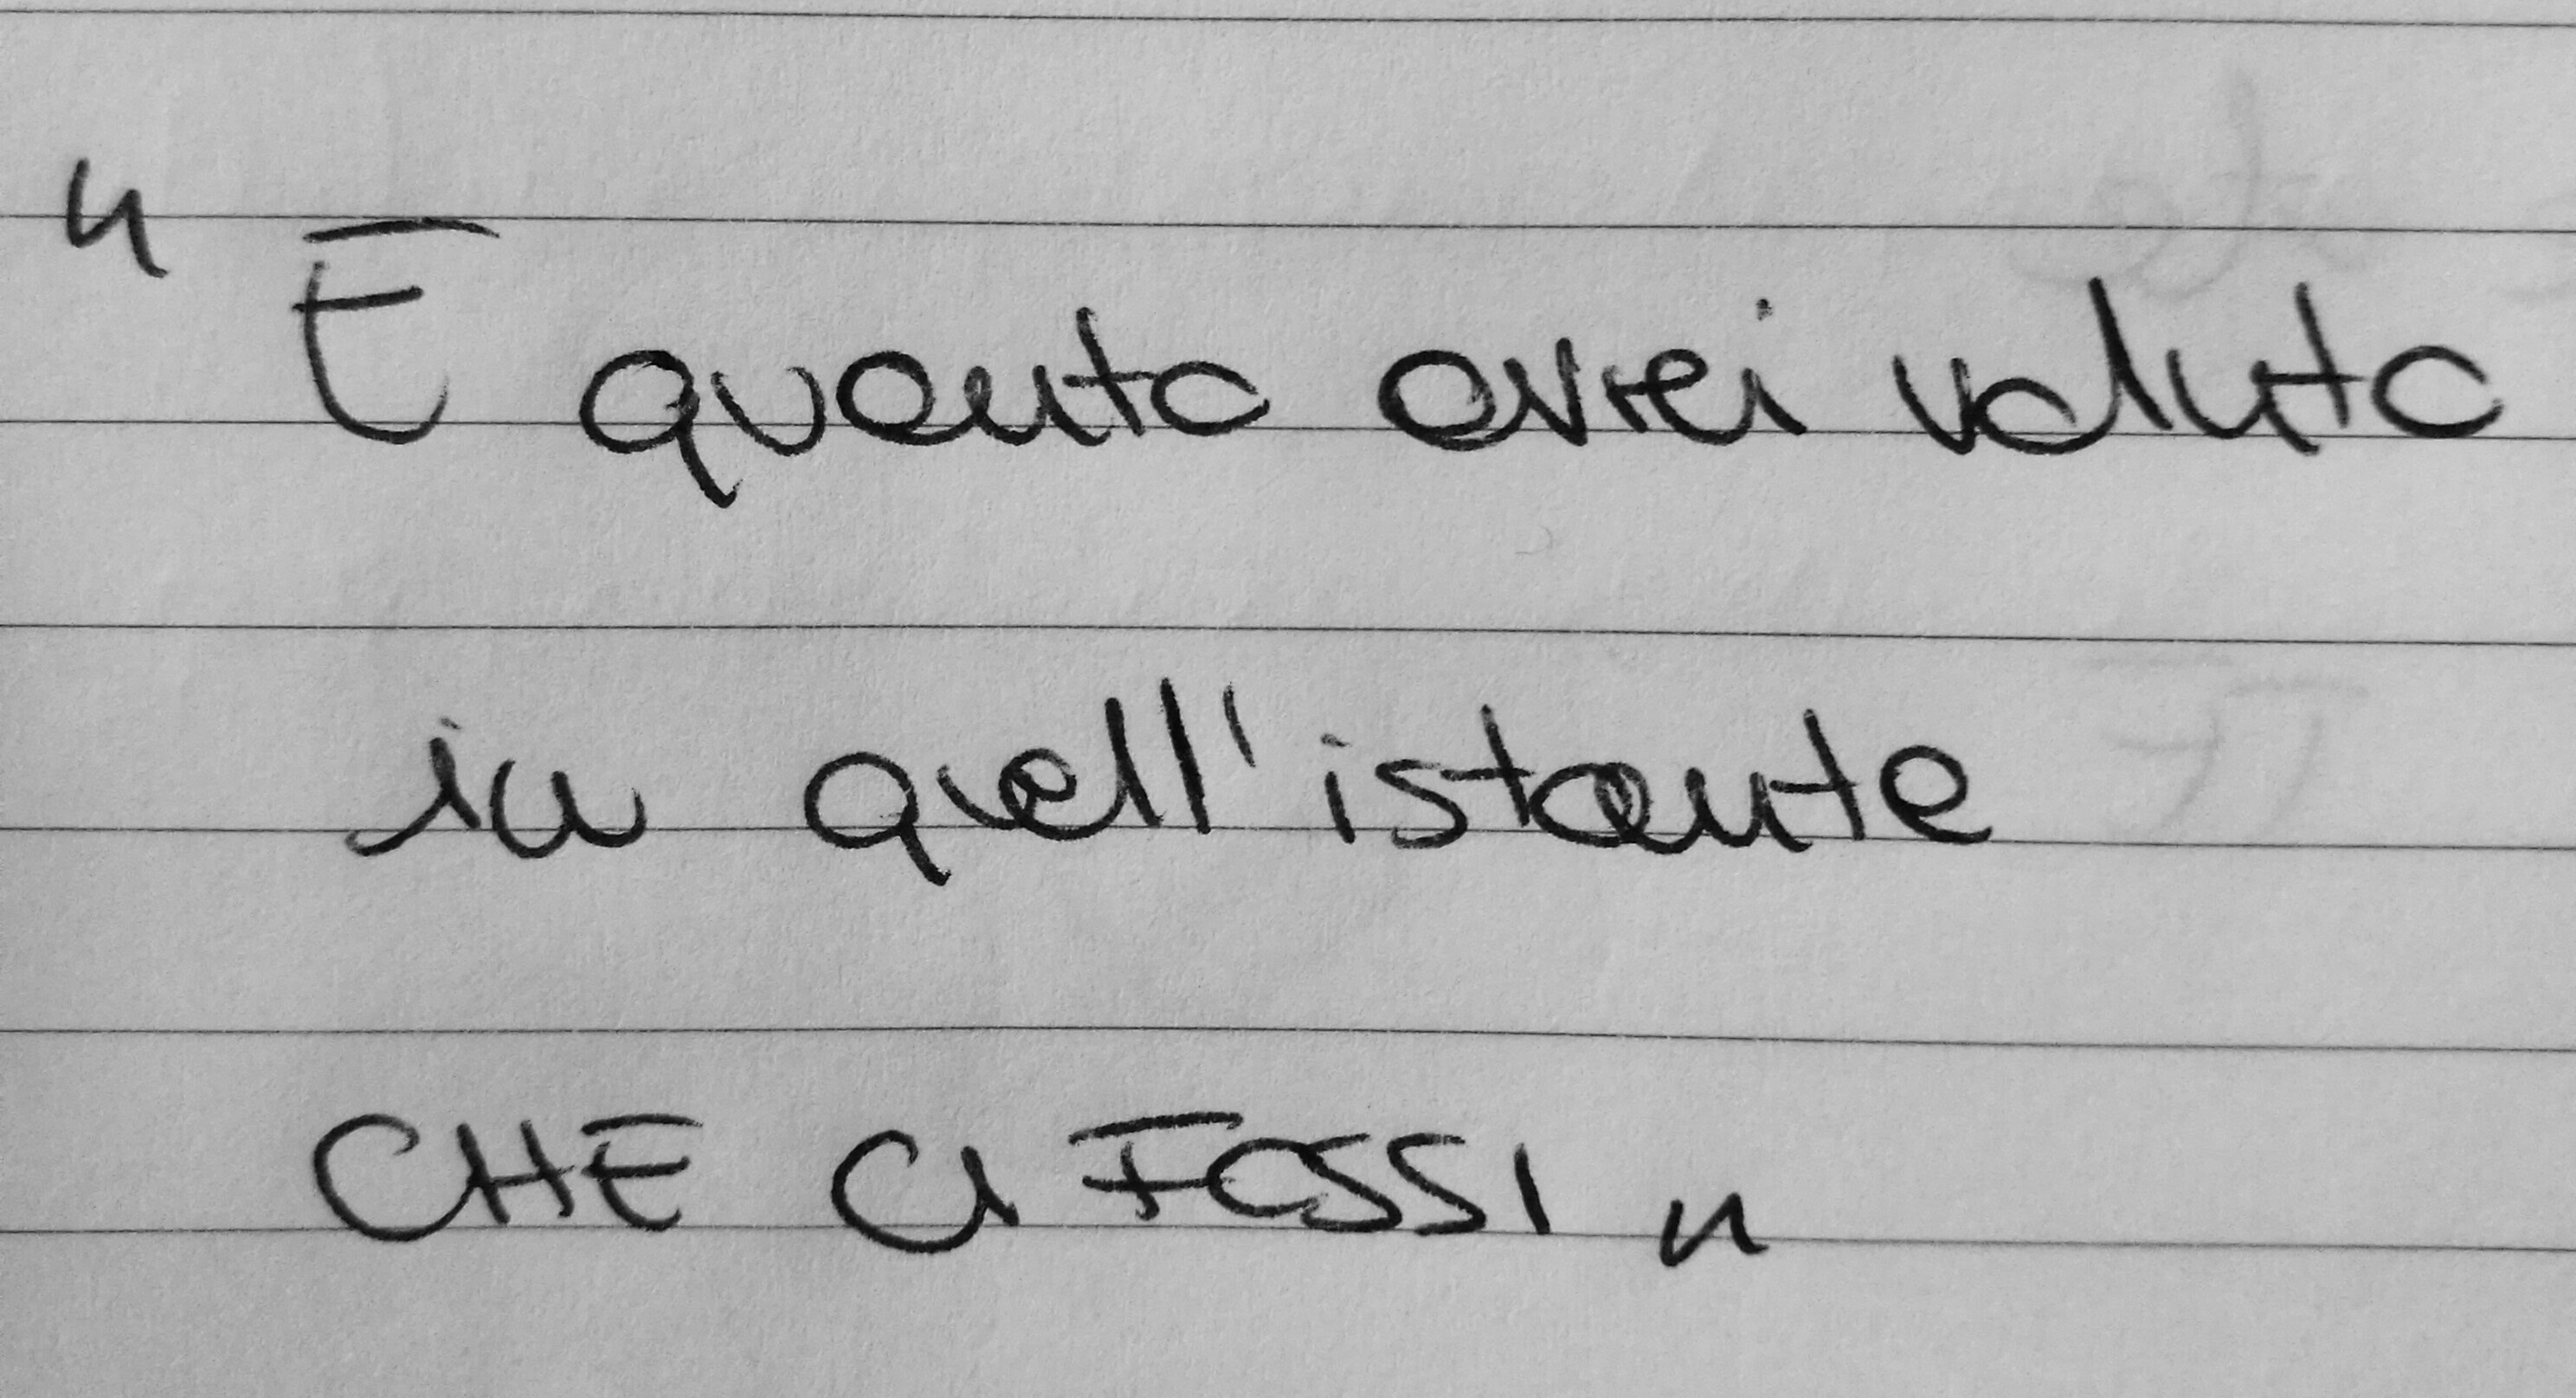 "E quanto avrei voluto
in quell'istante
CHE CI FOSSI"